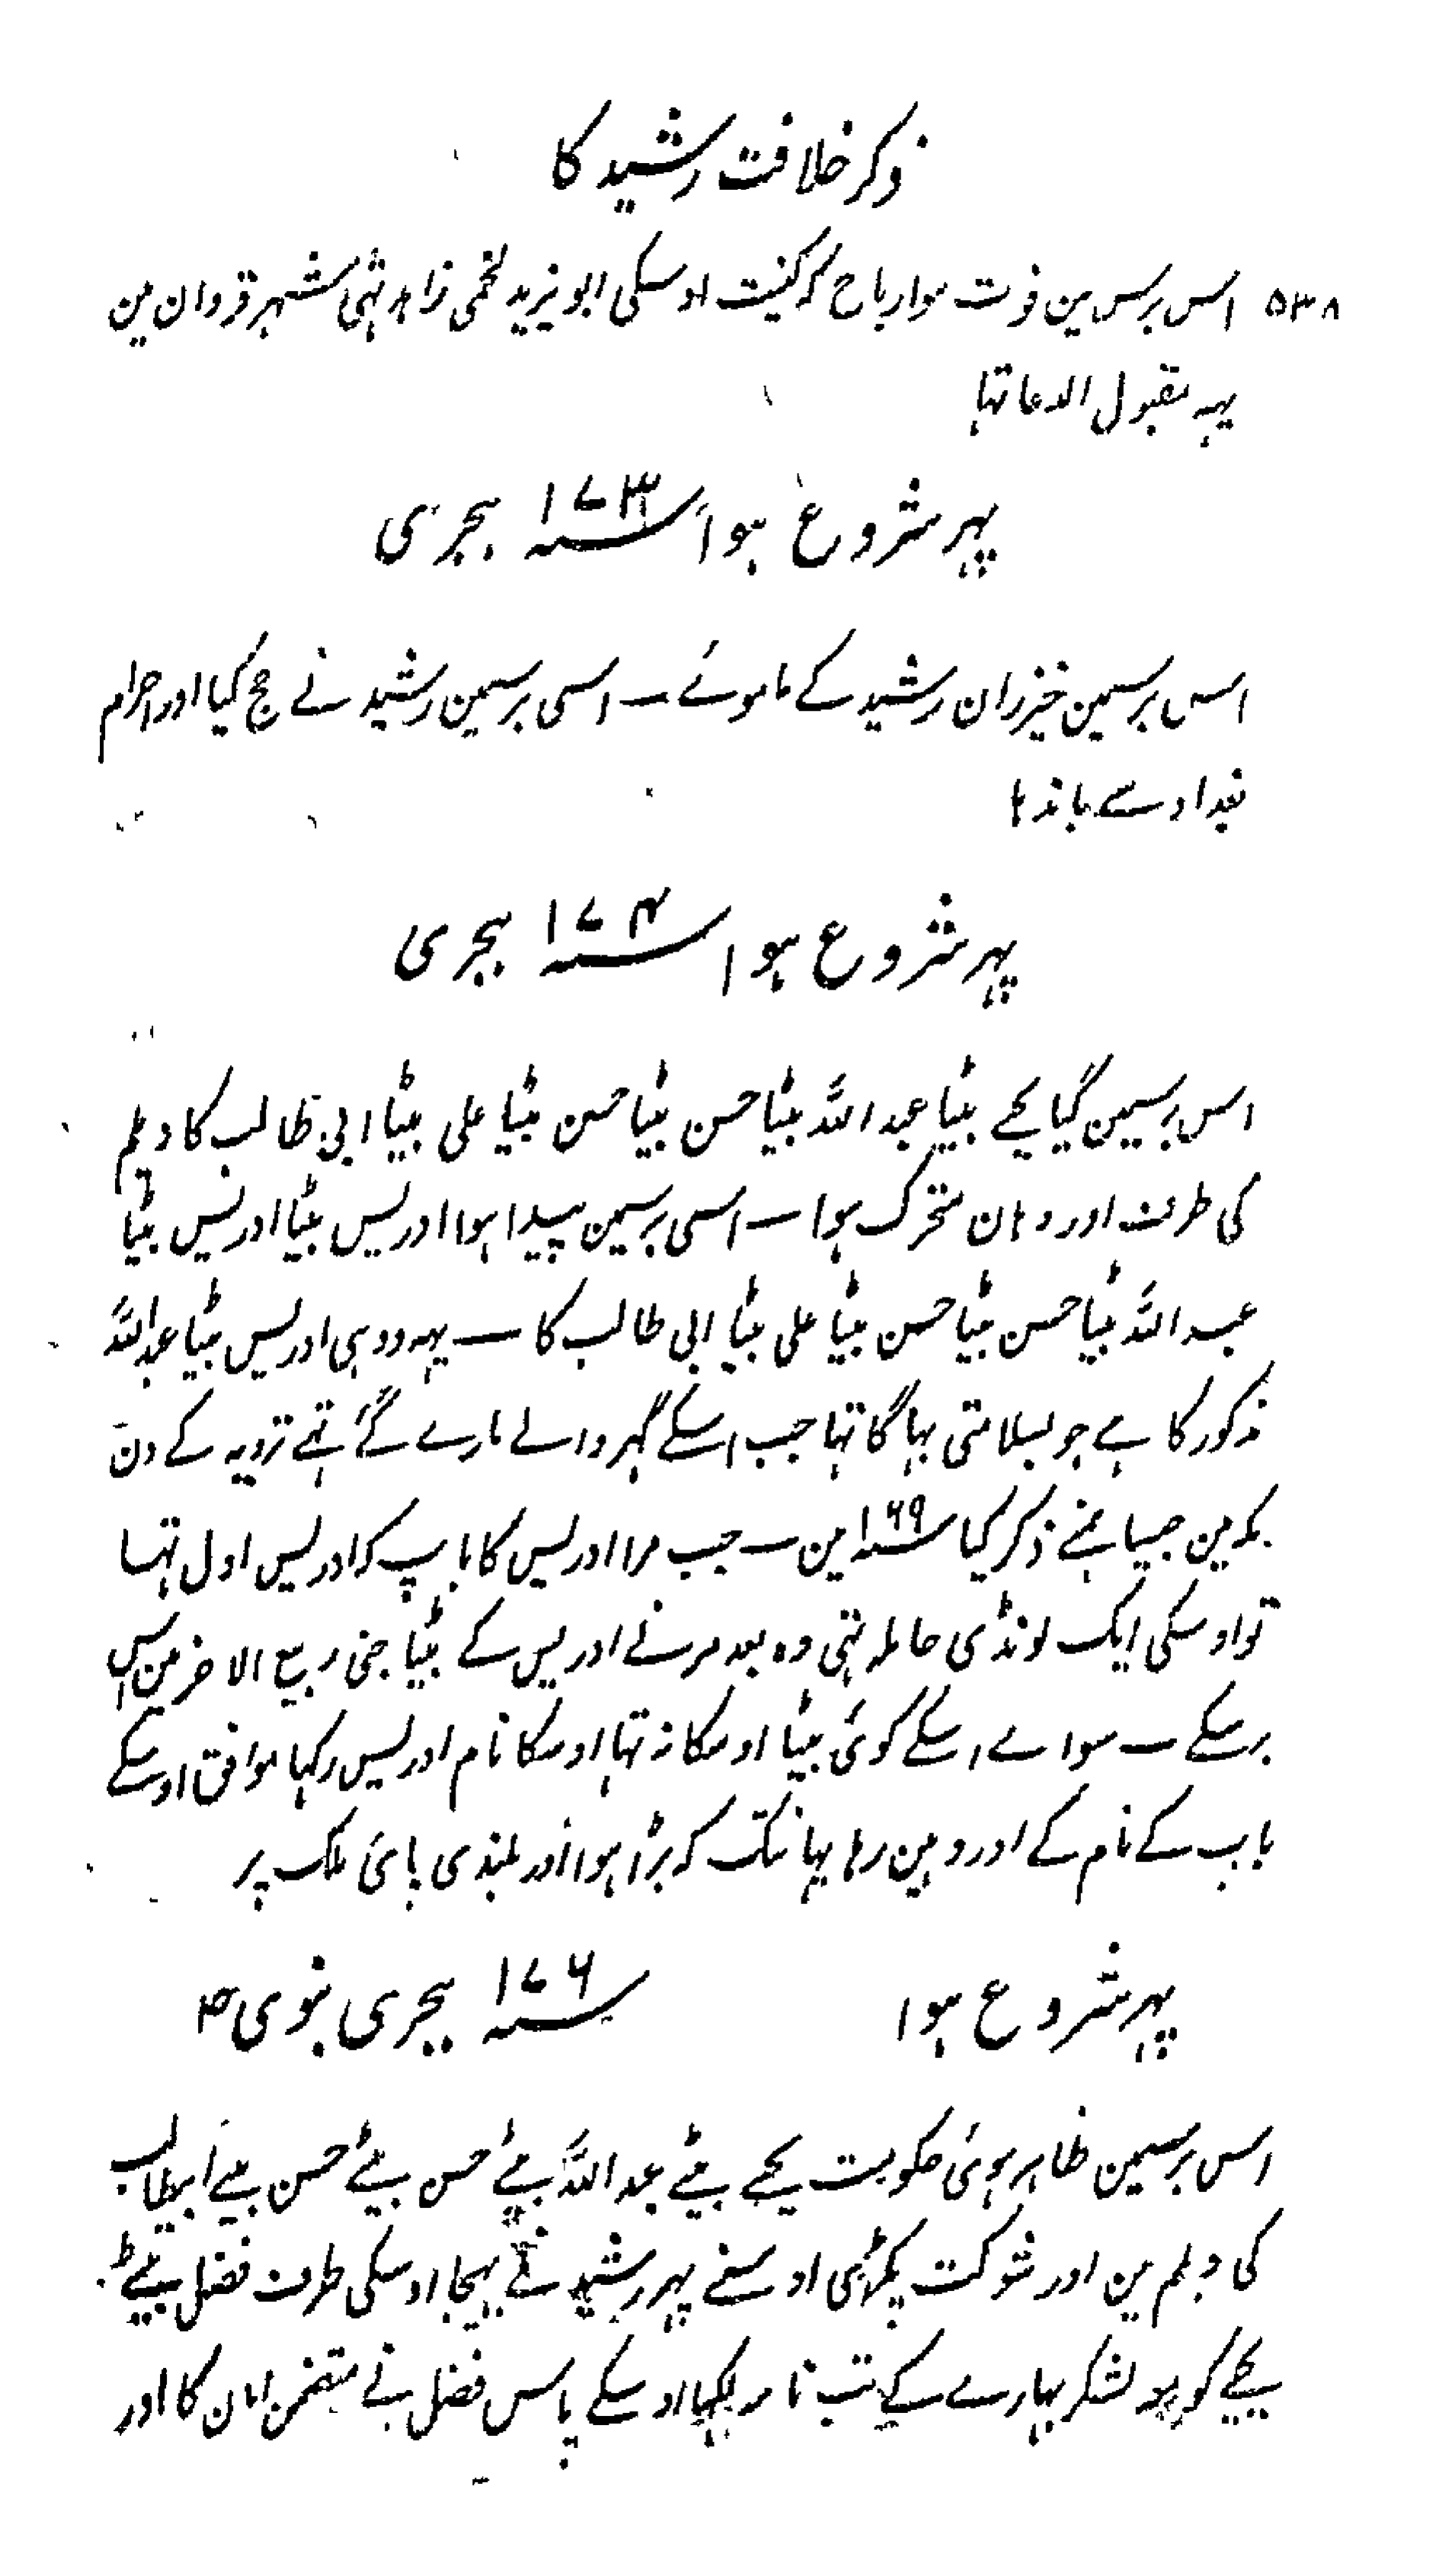 ذکر خلافت رشید کا
۵۳۸ اس برس مین فوت ہوا رباح کہ کنیت اوسکی ابو یزید لخمی زاہد تہی شہر قروان مین
یہہ مقبول الدعا تہا
پہر شروع ہوا سنہ ۱۷۳ ہجری
اس برسمین خیزران رشید کے ما موئے ــ اسی برسمین رشید نے حج کیا اور احرام
بغداد سے باندہا
پہر شروع ہوا سنہ ۱۷۴ ہجری
اس برسمین گیا یحے بیٹا عبد اللہ بیٹا حسن بیٹا حسن بیٹا علی بیٹا ابی طالب کا دیلم
کی طرف اور وہان متحرک ہوا ــ اسی برسمین پیدا ہوا ادریس بیٹا ادریس بیٹا
عبد اللہ بیٹا حسن بیٹا حسن بیٹا علی بیٹا ابی طالب کا ــ یہہ وہی ادریس بیٹا عبد اللہ
مذکور کا ہے جو بسلامتی بہاگا تہا جب اسکے گہر والے مارے گئے تہے ترویہ کے دن
مکہ مین جیسا ہمنے ذکر کیا سنہ ۱۶۹ مین ــ جب مرا ادریس کا باپ کہ ادریس اول تہا
تو اوسکی ایک لونڈی حاملہ تہی وہ بعد مرنے ادریس کے بیٹا جنی ربیع الاخر مین اس
برسکے ــ سواے اسکے کوئی بیٹا اوسکا نہ تہا اوسکا نام ادریس رکہا موافق اوسکے
باپ کے نام کے اور وہین رہا یہانتک کہ بڑا ہوا اور بلندی پائی ملک پر
پہر شروع ہوا سنہ ۱۷۶ ہجری نبوی ۴
اس برسمین ظاہر ہوئی حکومت یحے بیٹے عبد اللہ بیٹے حسن بیٹے حسن بیٹے ابیطالب
کی دیلم مین اور شوکت پکڑی اوسنے پہر رشید نے بہیجا اوسکی طرف فضل بیٹے
یحیے کو معہ لشکر بہارے کے تب نامہ لکہا اوسکے پاس فضل نے متضمن امان کا اور